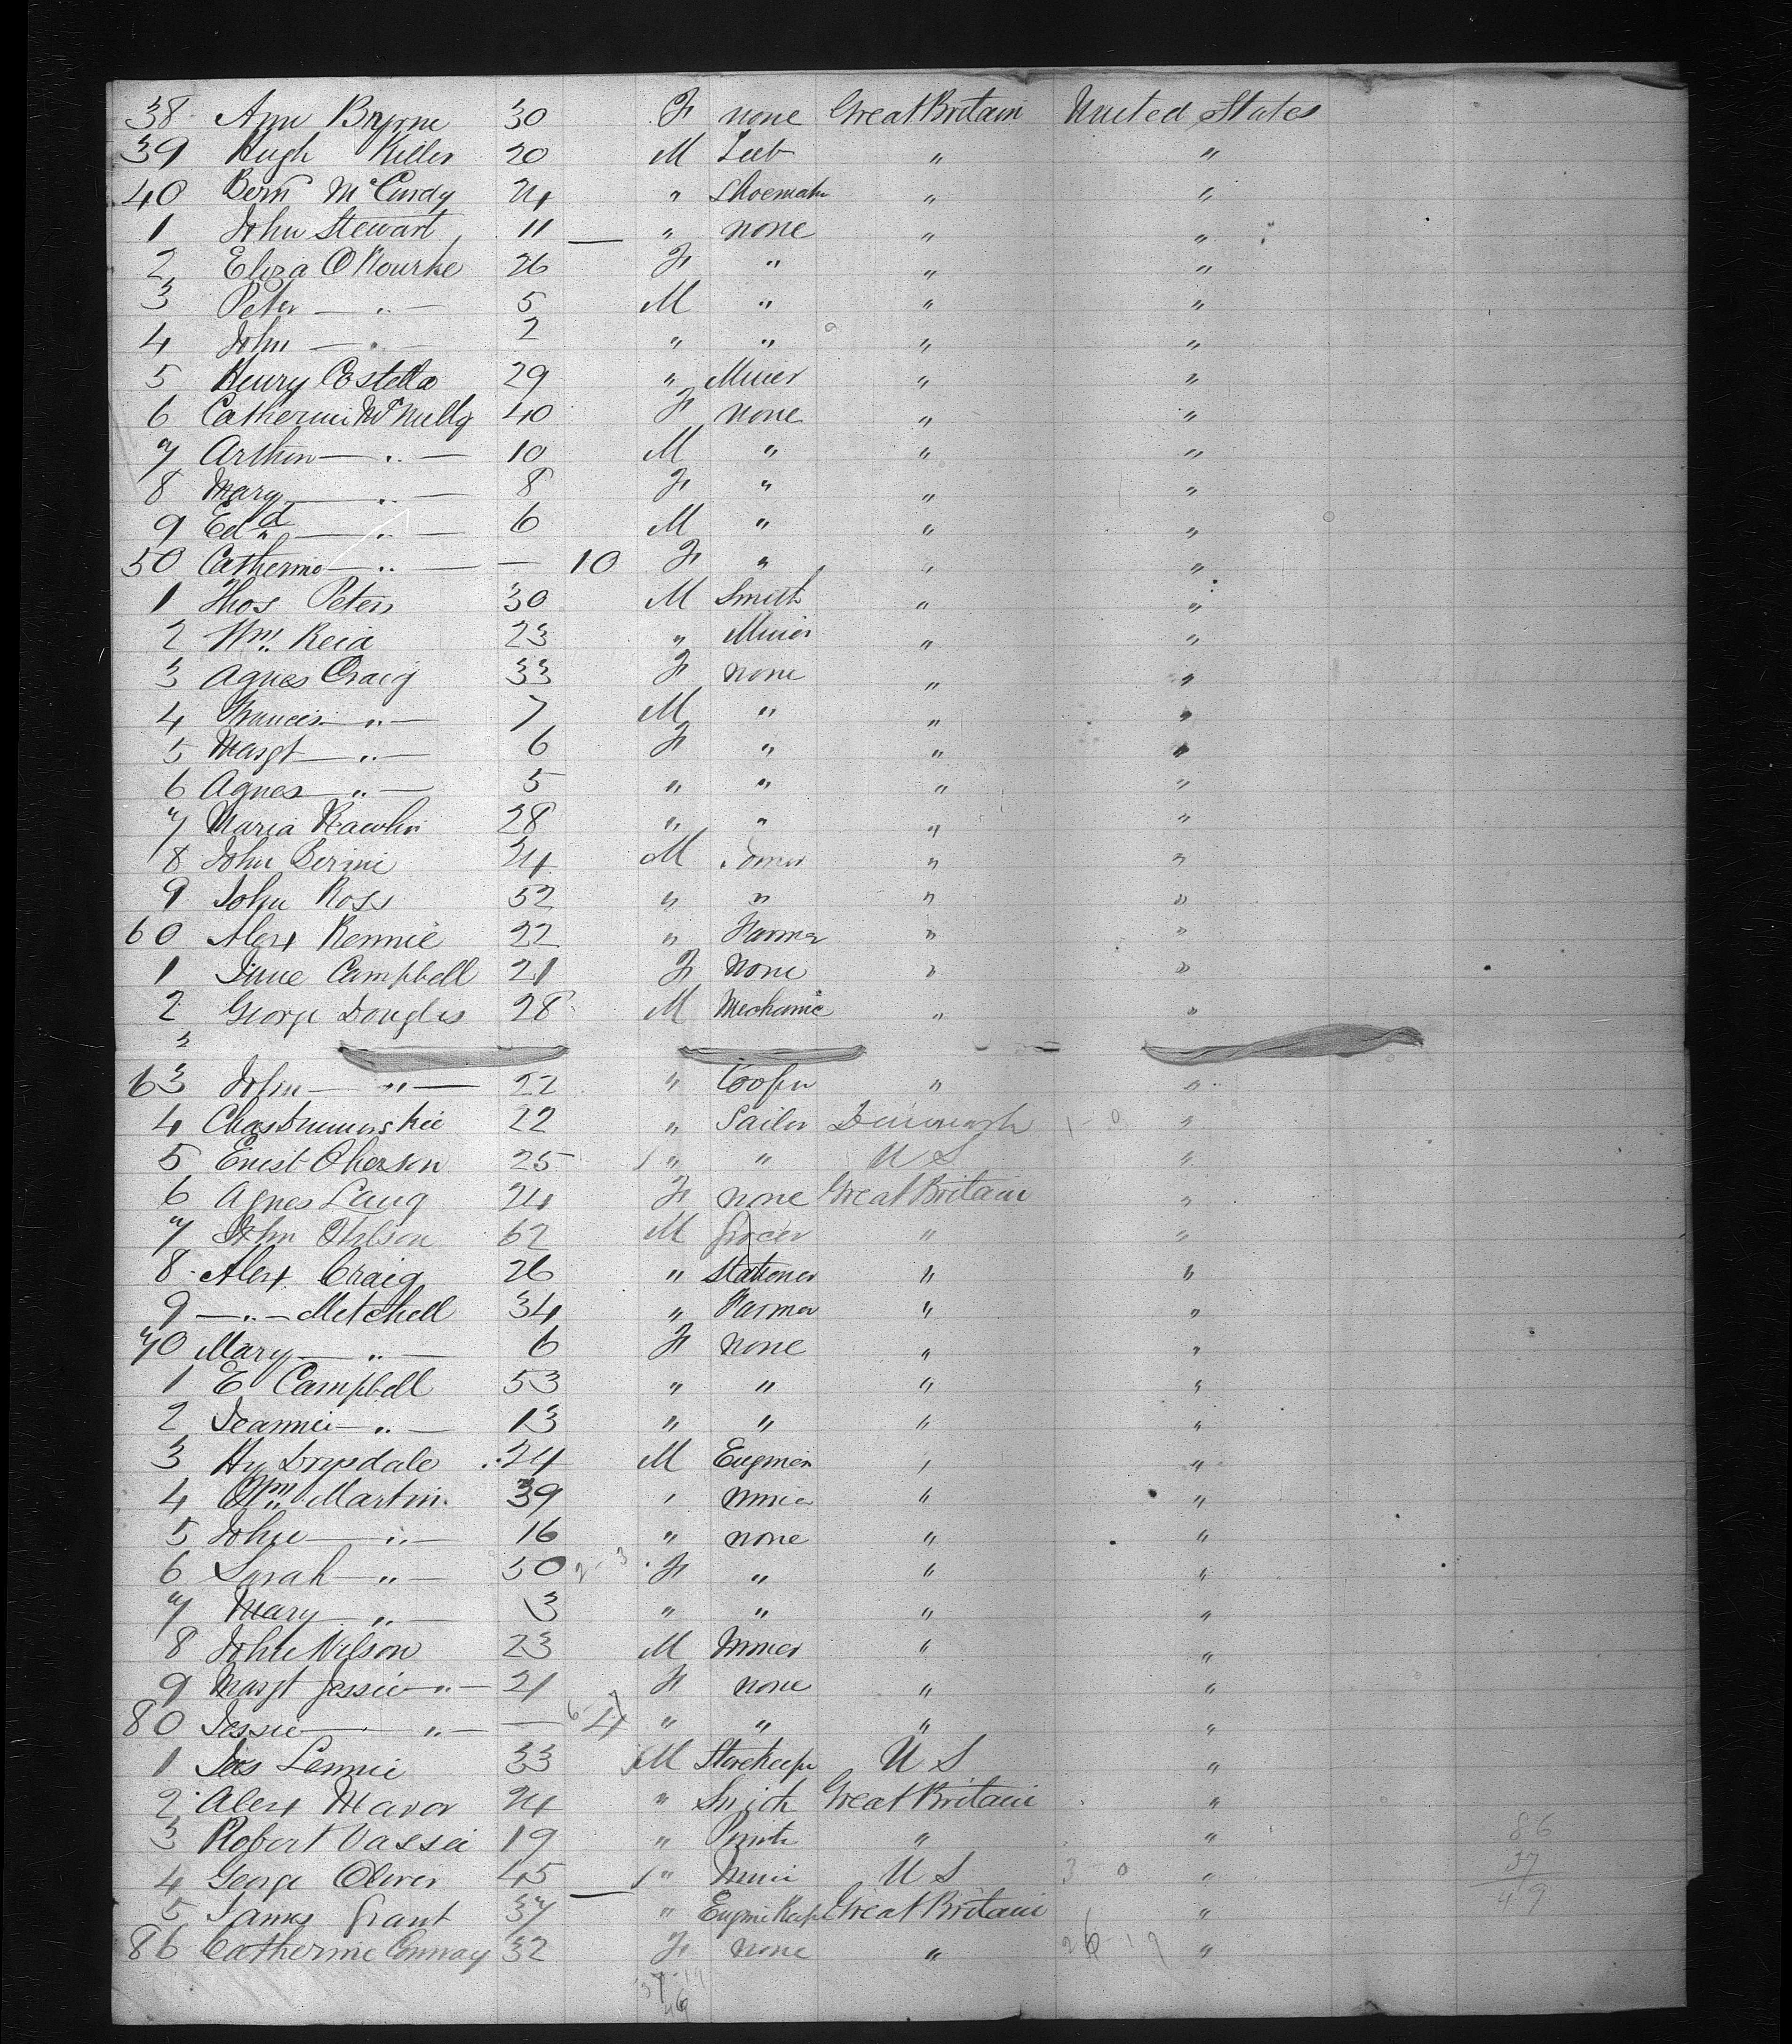 38 Ann Byrne 30 F none Great Britain United States
39 Hugh Keller 20 M Lab " "
40 Bernd McCurdy 24 " Shoemaker " "
1 John Stewart 11 — " none " "
2 Eliza O Rourke 26 F " " "
3 Peter — " — 5 M " " "
4 John — " — 2 " " " "
5 Henry Costello 29 " Miner " "
6 Catherine McNully 40 F none " "
7 Arthur — " — 10 M " " "
8 Mary — " — 8 F " " "
9 Edd — " — 6 M " " "
50 Catherine — " — — 10 F " " "
1 Thos Peters 30 M Smith " "
2 Wm Reid 23 " Miner " "
3 Agnes Craig 33 F none " "
4 Francis — " — 7 M " " "
5 Margt — " — 6 F " " "
6 Agnes — " — 5 " " " "
7 Maria 28 " " " "
8 John 24 M " "
9 John Ross 52 " " " "
60 Alex Rennie 22 " Farmer " "
1 Jane Campbell 21 F None " "
2 George Douglas 28 M Mechanic " "
3
63 John — " — 22 " Cooper " "
4 Chas 22 " Sailor Denmark 1 - 0 "
5 25 " " U S "
6 Agnes Lang 24 F none Great Britain "
7 John 62 M Grocer " "
8 Alex Craig 26 " Stationer " "
9 — " — Mitchell 34 " Farmer " "
70 Mary — " — 6 F none " "
1 E Campbell 53 " " " "
2 Jeannie — " — 13 " " " "
3 Hy Drysdale 24 M Engineer " "
4 Wm Martin 39 " miner " "
5 John — " — 16 " none " "
6 Sarah — " — 30 2 - 3 F " " "
7 Mary — " — 3 " " " "
8 John Nelson 23 M Miner " "
9 Margt Jessie — " — 21 F none " "
80 Jessie — " — — 4 " " " "
1 Jas Lennie 33 M Storekeeper U S "
2 Alex Mavor 24 " Smith Great Britain "
3 Robert 19 " " "
4 George Oliver 45 " Miner U S 3 - 0 "
5 James Grant 37 " Great Britain "
86 Catherine Conway 32 F none " 26 - 19 "
86
37
49